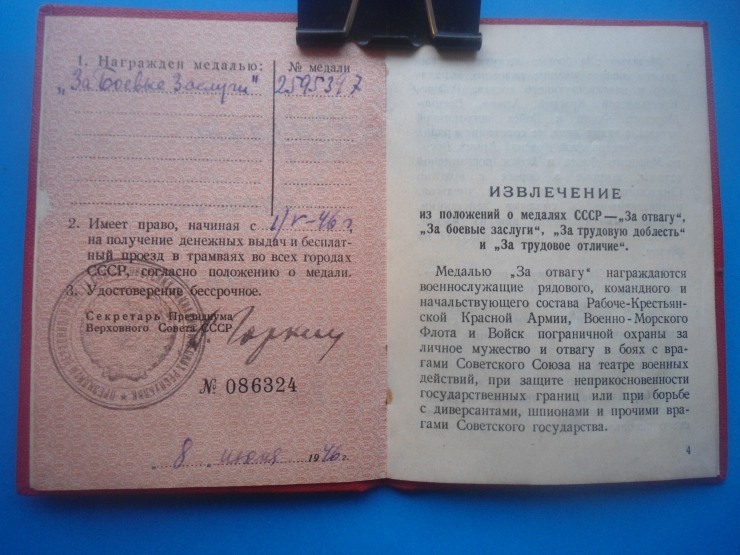 1. Награжден медалью:
№ медали
„За Боевые Заслуги"
2595397
2. Имеет право, начиная с 1/V-46 г.
на получение денежных выдач и бесплат-
ный проезд в трамваях во всех городах
СССР, согласно положению о медали.
3. Удостоверение бессрочное.
Секретарь Президиума
Верховного Совета СССР
№ 086324
8 июня 1946 г.
ИЗВЛЕЧЕНИЕ
из положений о медалях СССР—„За отвагу",
„За боевые заслуги", „За трудовую доблесть"
и „За трудовое отличие".
Медалью „За отвагу" награждаются
военнослужащие рядового, командного и
начальствующего состава Рабоче-Крестьян-
ской Красной Армии, Военно-Морского
Флота и Войск пограничной охраны за
личное мужество и отвагу в боях с вра-
гами Советского Союза на театре военных
действий, при защите неприкосновенности
государственных границ или при борьбе
с диверсантами, шпионами и прочими вра-
гами Советского государства.
4